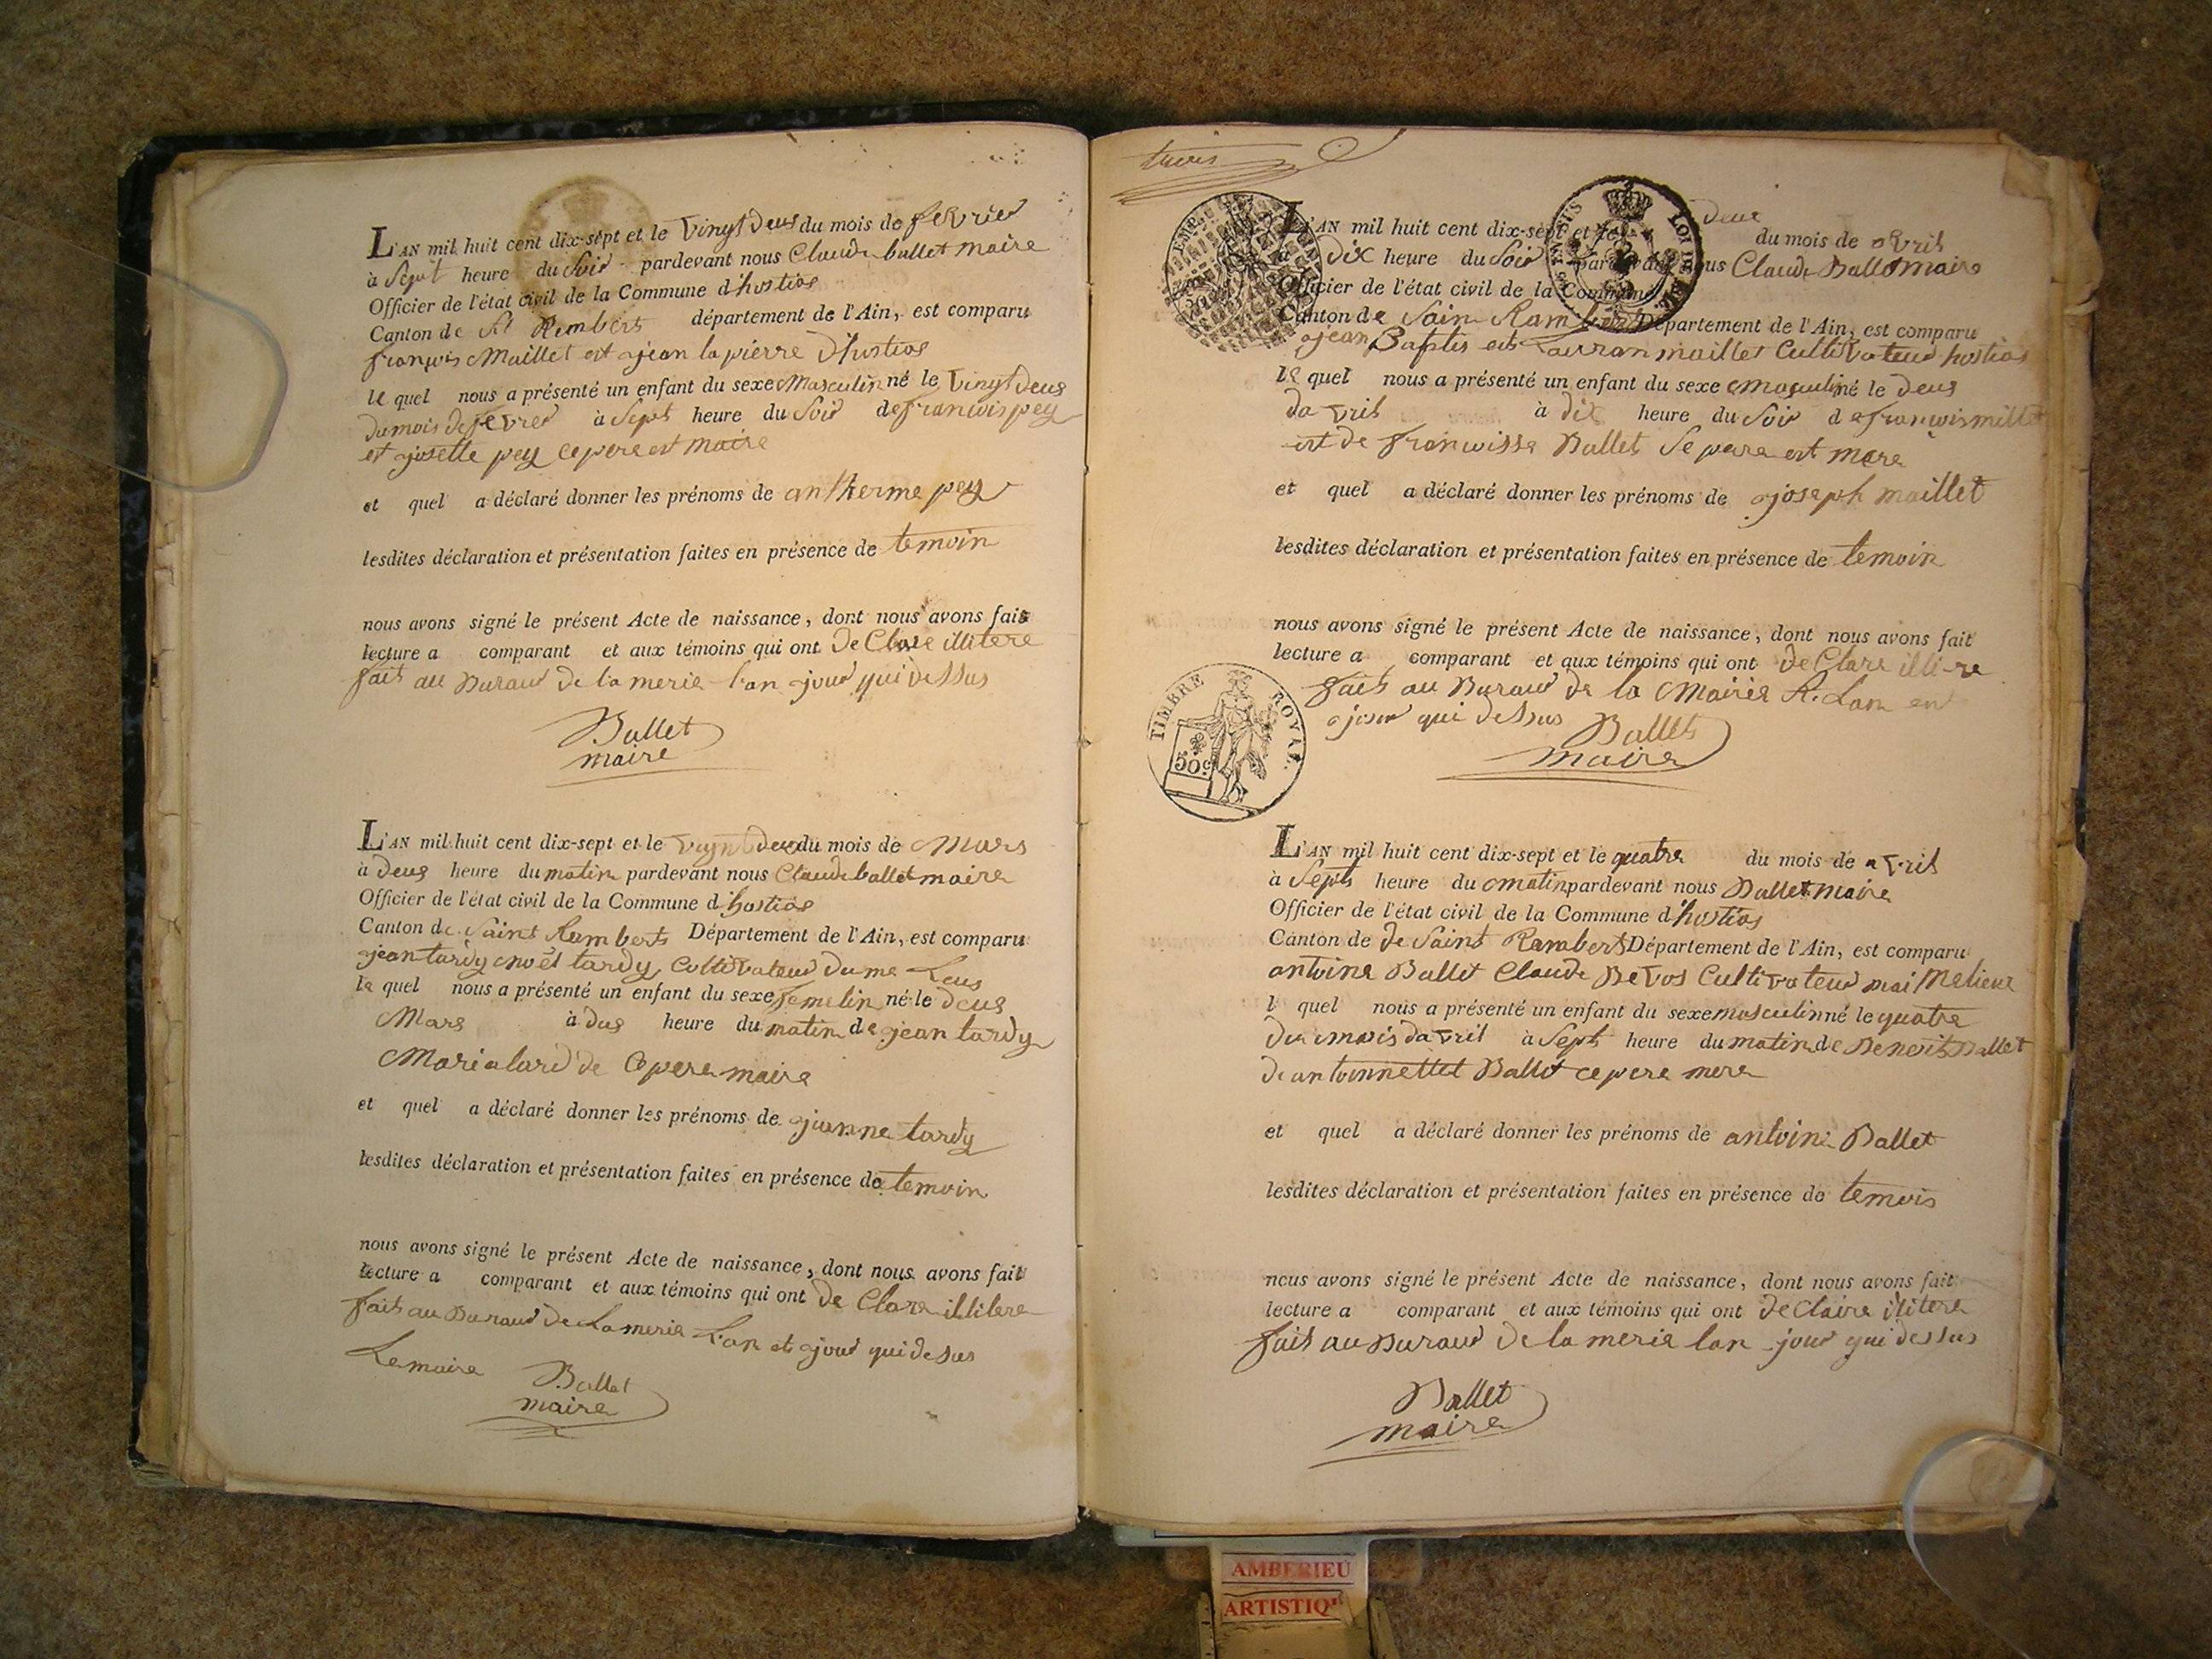 L'AN mil huit cent dix-sept et le vingt deus du mois de fevrier
à Sept heure du Soir pardevant nous Claude ballet maire
Officier de l'état civil de la Commune d'hostias
Canton de St Rembert département de l'Ain, est comparu
françois Maillet est jean la pierre d'hostias
le quel nous a présenté un enfant du sexe Masculin né le vingt deus
du mois de fevrer à Sept heure du Soir de francois pey
et josette pey ce pere est maire
et quel a déclaré donner les prénoms de antherme pey
lesdites déclaration et présentation faites en présence de temoin
nous avons signé le présent Acte de naissance, dont nous avons fait
lecture a comparant et aux témoins qui ont de Clare illitere
fait au Buraur de la merie l'an jour qui dessus
Ballet
maire
L'AN mil huit cent dix-sept et le deus du mois de Mars
à deus heure du matin pardevant nous Claude ballet maire
Officier de l'état civil de la Commune d'hostias
Canton de Saint Ramberts Département de l'Ain, est comparu
jean tardy noël tardy Coltivateur du me Leus
le quel nous a présenté un enfant du sexe femelin né le deus
Mars à dus heure du matin de jean tardy
Ce pere maire
et quel a déclaré donner les prénoms de jeanne tardy
lesdites déclaration et présentation faites en présence de temoin
nous avons signé le présent Acte de naissance, dont nous avons fait
lecture a comparant et aux témoins qui ont de Clare illitere
fait au Buraur de La merie L'an et jour qui desus
Le maire Ballet
maire
trois
L'AN mil huit cent dix-sept et le deus du mois de avril
à Dix heure du Soir pardevant nous Claude Ballet maire
Officier de l'état civil de la Commune
Canton de Sain Rambert Département de l'Ain, est comparu
jean Baptis est Lauran maillet Cultivateur hostias
le quel nous a présenté un enfant du sexe masculin né le deus
davril à dix heure du Soir de françois millet
est de francoisse Ballet Se pere est mere
et quel a déclaré donner les prénoms de joseph maillet
lesdites déclaration et présentation faites en présence de temoin
TIMBRE ROYAL
50c
nous avons signé le présent Acte de naissance, dont nous avons fait
lecture a comparant et aux témoins qui ont de Clare
fait au Buraur de la Mairie Lan
jour qui dessus Ballet
maire
L'AN mil huit cent dix-sept et le quatre du mois de avril
à Septs heure du matin pardevant nous Ballet maire
Officier de l'état civil de la Commune d'hostias
Canton de de Saint Ramberts Département de l'Ain, est comparu
antoine Ballet Claude Bevos Cultivateur
l quel nous a présenté un enfant du sexe masculin né le quatre
du mois davril à Septs heure du matin de Benoit Ballet
De antoinnettet Ballet ce pere mere
et quel a déclaré donner les prénoms de antoine Ballet
lesdites déclaration et présentation faites en présence de temois
nous avons signé le présent Acte de naissance, dont nous avons fait
lecture a comparant et aux témoins qui ont de Claire ilitere
fait au Buraur de la merie lan jour qui dessus
Ballet
maire
AMBERIEU
ARTISTIQ